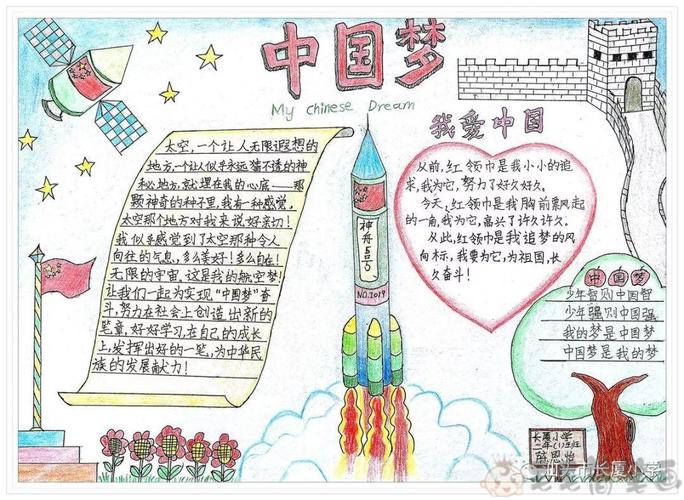 中国梦
My Chinese Dream
太空，一个让人无限遐想的
地方，一个让人似乎永远猜不透的神
秘地方，就埋在我的心底——那
颗神奇的种子里，我有一种感觉。
太空那个地方对我来说好亲切！
我似乎感觉到了太空那种令人
向往的气息，多么美好！多么自在！
无限的宇宙，这是我的航空梦！
让我们一起为实现“中国梦”奋
斗，努力在社会上创造出新的
笔章，好好学习，在自己的成长
上，发挥出好的一笔，为中华民
族的发展献力！
神舟5号
NO.2019
我爱中国
从前，红领巾是我小小的追
求，我为它，努力了好久好久。
今天，红领巾是我胸前飘起
的一角，我为它，高兴了许久许久。
从此，红领巾是我追梦的风
向标，我要为它，为祖国，长
久奋斗！
中国梦
少年智则中国智
少年强则中国强
我的梦是中国梦
中国梦是我的梦
长厦小学
二年(1)班
陈恩怡
汕头市长厦小学